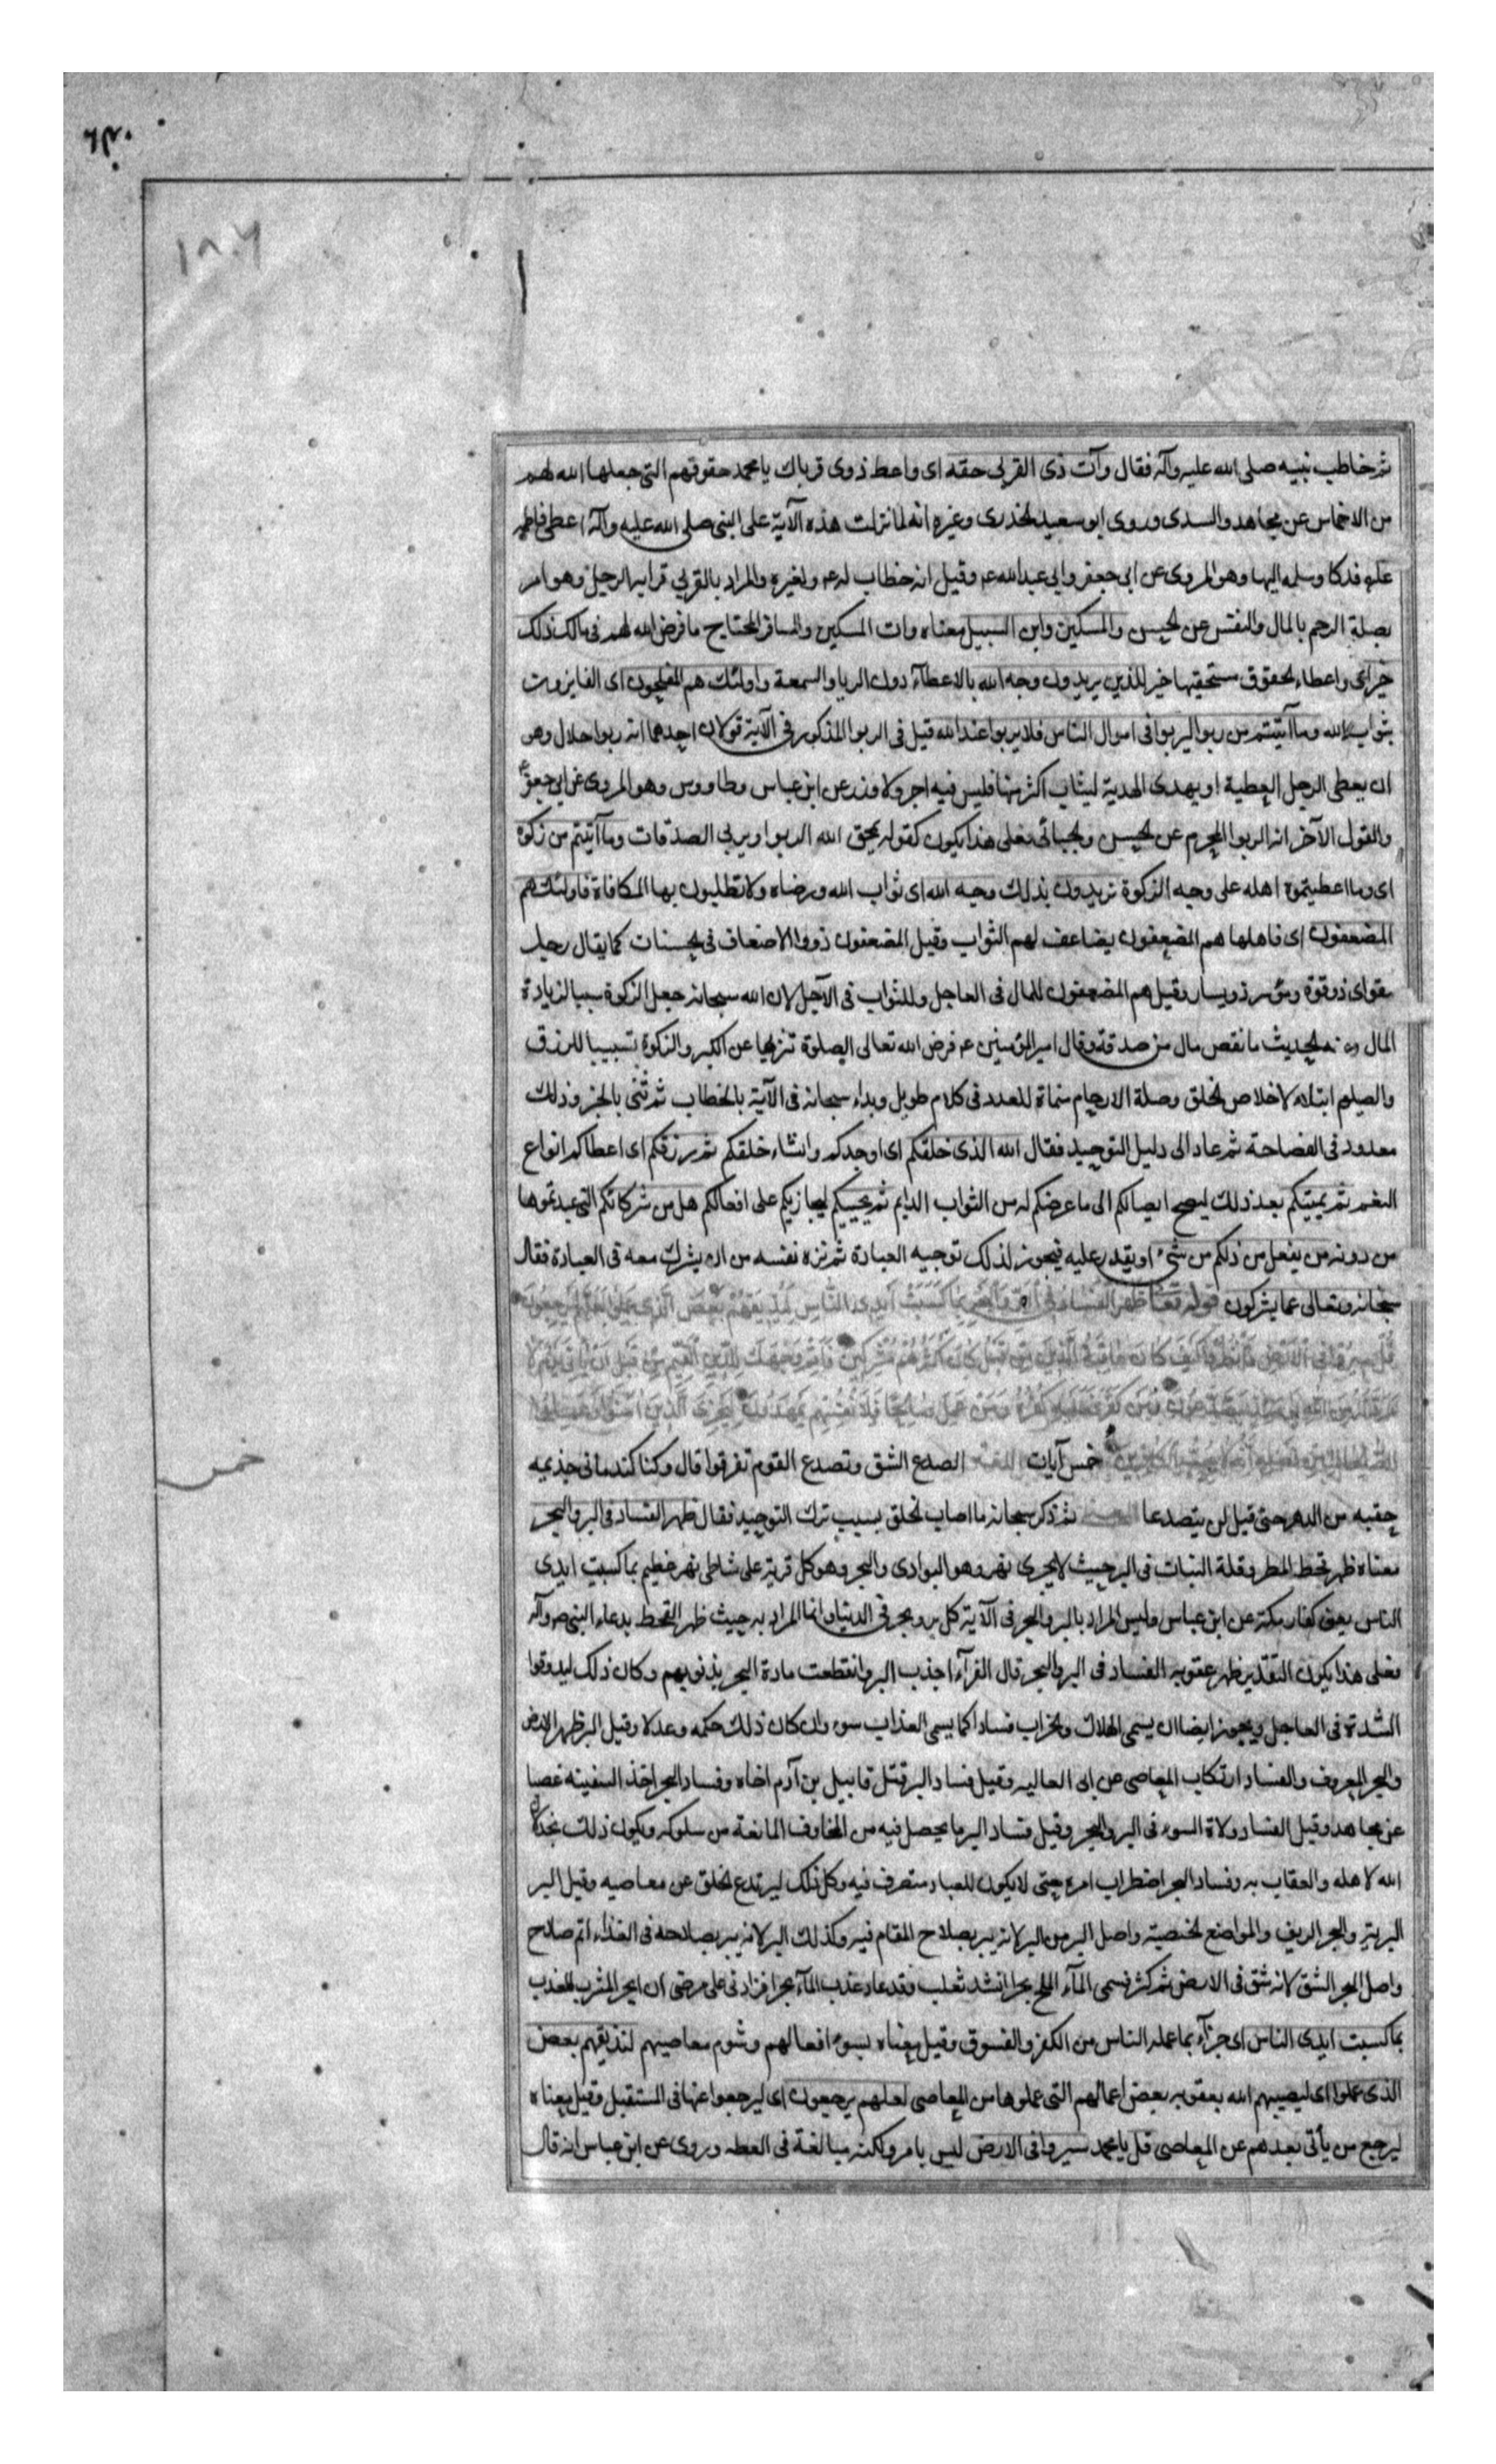 ١٨٠٦
ثم خاطب نبيه صلى الله عليه وآله فقال وآت ذى القربى حقه اى واعط ذوى قرباك يا محمد حقوقهم التى جعلها الله لهم
من الاخماس عن مجاهد والسدى وروى ابو سعيد الخدرى وغيره انه لما نزلت هذه الآية على النبى صلى الله عليه وآله اعطى فاطمه
عليها فدكا وسلمه اليها وهو المروى عن ابى جعفر وابى عبدالله ع وقيل انه خطاب له ع ولغيره والمراد بالقربى قرابه الرجل وهو امر
بصلة الرحم بالمال والنفس عن الحسن والمسكين وابن السبيل معناه وات المسكين والمسافر المحتاج ما فرض الله لهم فى مالك ذلك
خير اى واعطاء الحقوق مستحقيها خير للذين يريدون وجه الله بالاعطاء دون الريا والسمعة واولئك هم المفلحون اى الفايزون
بثواب الله وما آتيتم من ربوا ليربوا فى اموال الناس فلا يربوا عند الله قيل فى الربوا المذكور فى الآية قولان احدهما انه ربوا حلال وهو
ان يعطى الرجل العطية او يهدى الهدية ليثاب اكثر منها فليس فيه اجر ولا وزر عن ابن عباس وطاووس وهو المروى عن ابى جعفر ع
والقول الآخر انه الربوا المحرم عن الحسن والجبائى فعلى هذا يكون كقوله يمحق الله الربوا ويربى الصدقات وما آتيتم من زكوة
اى وما اعطيتموه اهله على وجه الزكوة تريدون بذلك وجه الله اى ثواب الله ورضاه ولا تطلبون بها المكافاة فاولئك هم
المضعفون اى فاهلها هم المضعفون يضاعف لهم الثواب وقيل المضعفون ذووا الاضعاف فى الحسنات كما يقال رجل
مقو اى ذو قوة وموسر ذو يسار وقيل هم المضعفون للمال فى العاجل وللثواب فى الآجل لان الله سبحانه جعل الزكوة سببا لزيادة
المال ومنه الحديث ما نقص مال من صدقة وقال امير المؤمنين ع فرض الله تعالى الصلوة تنزيها عن الكبر والزكوة تسبيبا للرزق
والصيام ابتلاء لاخلاص الخلق وصلة الارحام منماة للعدد فى كلام طويل وبداء سبحانه فى الآية بالخطاب ثم ثنى بالخبر وذلك
معدود فى الفصاحة ثم عاد الى دليل التوحيد فقال الله الذى خلقكم اى اوجدكم وانشاء خلقكم ثم رزقكم اى اعطاكم انواع
النعم ثم يميتكم بعد ذلك ليصح ايصالكم الى ما عرضكم له من الثواب الدايم ثم يحييكم ليجازيكم على افعالكم هل من شركائكم التى عبدتموها
من دونه من يفعل من ذلكم من شىء او يقدر عليه فيجوز لذلك توجيه العبادة ثم نزه نفسه من ان يشرك معه فى العبادة فقال
سبحانه وتعالى عما يشركون قوله تعالى ظهر الفساد فى البر والبحر بما كسبت ايدى الناس ليذيقهم بعض الذى عملوا لعلهم يرجعون
قل سيروا فى الارض فانظروا كيف كان عاقبة الذين من قبل كان اكثرهم مشركين فاقم وجهك للدين القيم من قبل ان ياتى يوم لا
مرد له من الله يومئذ يصدعون من كفر فعليه كفره ومن عمل صالحا فلانفسهم يمهدون ليجزى الذين امنوا وعملوا
الصالحات من فضله انه لا يحب الكافرين خمس آيات اللغة الصدع الشق وتصدع القوم تفرقوا قال وكنا كندمانى جذيمه
خمس
حقبه من الدهر حتى قيل لن يتصدعا المعنى ثم ذكر سبحانه ما اصاب الخلق بسبب ترك التوحيد فقال ظهر الفساد فى البر والبحر
معناه ظهر قحط المطر وقلة النبات فى البر حيث لا يجرى نهر وهو البوادى والبحر وهو كل قرية على شاطى نهر عظيم بما كسبت ايدى
الناس يعنى كفار مكة عن ابن عباس وليس المراد بالبر والبحر فى الآية كل بر وبحر فى الدنيا وانما المراد به حيث ظهر القحط بدعاء النبى ص وآله
فعلى هذا يكون التقدير ظهر عقوبه الفساد فى البر والبحر قال الفرآء اجذب البر وانقطعت مادة البحر بذنوبهم وكان ذلك ليذوقوا
الشدة فى العاجل ويجوز ايضا ان يسمى الهلاك والخراب فسادا كما يسمى العذاب سوء وان كان ذلك حكمه وعدلا وقيل البر ظهر الارض
والبحر المعروف والفساد ارتكاب المعاصى عن ابى العاليه وقيل فساد البر قتل قابيل بن آدم اخاه وفساد البحر اخذ السفينه غصبا
عن مجاهد وقيل الفساد ولاة السوء فى البر والبحر وقيل فساد البر ما يحصل فيه من المخاوف المانعة من سلوكه ويكون ذلك بخذلان
الله لاهله والعقاب به وفساد البحر اضطراب امره حتى لا يكون للعباد متصرف فيه وكل ذلك ليرتدع الخلق عن معاصيه وقيل البر
البرية والبحر الريف والمواضع الخصبة واصل البر من البر لانه يبر بصلاح المقام فيه وكذلك البر لانه يبر بصلاحه فى الغذاء اتم صلاح
واصل البحر الشق لانه شق فى الارض ثم كثر فسمى المآء الملح بحرا انشد ثعلب فقد عاد عذب المآء بحرا فزادنى على مرضى ان ابحر المشرب العذب
بما كسبت ايدى الناس اى جزآء بما عمله الناس من الكفر والفسوق وقيل معناه بسوء افعالهم وشوم معاصيهم لنذيقهم بعض
الذى عملوا اى ليصيبهم الله بعقوبه بعض اعمالهم التى عملوها من المعاصى لعلهم يرجعون اى ليرجعوا عنها فى المستقبل وقيل معناه
ليرجع من يأتى بعدهم عن المعاصى قل يا محمد سيروا فى الارض ليس بامر ولكنه مبالغة فى العظه وروى عن ابن عباس انه قال